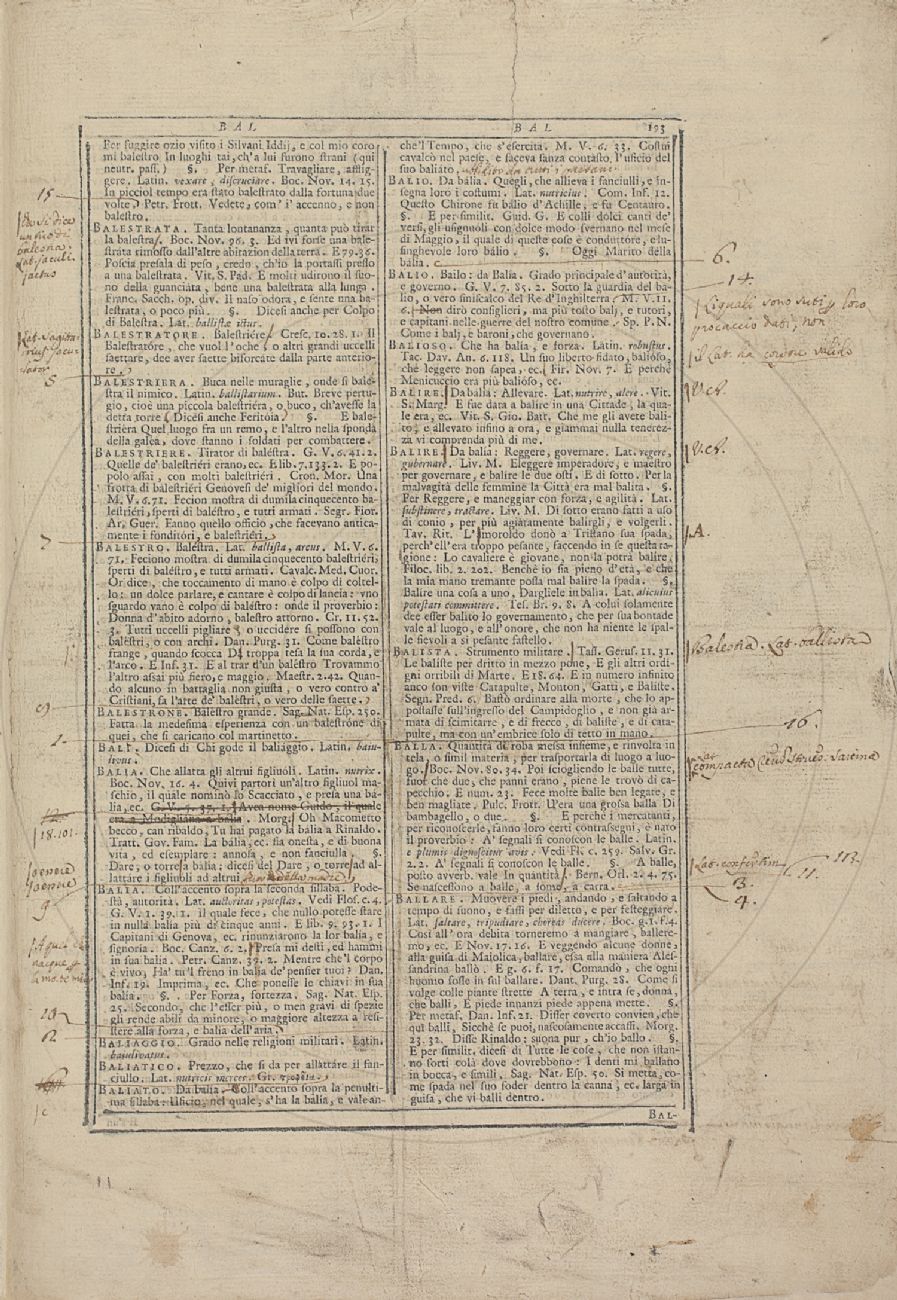 BAL
BAL
193
Per fuggire ozio visito i Silvani Iddij, e col mio coro
mi balestro In luoghi tai, ch'a lui furono strani (qui
neutr. pass.) §. Per metaf. Travagliare, afflig-
gere. Latin. vexare, discruciare. Boc. Nov. 14. 15.
In picciol tempo era stato balestrato dalla fortuna due
volte. Petr. Frott. Vedete, com' i' accenno, e non
balestro.
BALESTRATA. Tanta lontananza, quanta può tirar
la balestra. Boc. Nov. 96. 3. Ed ivi forse una bale-
strata rimosso dall'altre abitazion della terra. E 79. 36.
Poscia presala di peso, credo, ch'io la portassi presso
a una balestrata. Vit. S. Pad. E molti udirono il suo-
no della guanciata, bene una balestrata alla lunga.
Franc. Sacch. op. div. Il naso odora, e sente una ba-
lestrata, o poco più. §. Dicesi anche per Colpo
di Balestra. Lat. ballistæ ictus.
BALESTRATORE. Balestriére. Cresc. 10. 28. 1. Il
Balestratóre, che vuol l'oche, o altri grandi uccelli
saettare, dee aver saette biforcate dalla parte anterio-
re.
BALESTRIERA. Buca nelle muraglie, onde si balé-
stra il nimico. Latin. ballistarium. But. Breve pertu-
gio, cioè una piccola balestriéra, o buco, ch'avesse la
detta torre. Dicesi anche Feritóia. §. E bale-
striéra Quel luogo fra un remo, e l'altro nella sponda
della galea, dove stanno i soldati per combattere.
BALESTRIERE. Tirator di baléstra. G. V. 6. 41. 2.
Quelle de' balestriéri erano, ec. E lib. 7. 133. 2. E po-
polo assai, con molti balestriéri. Cron. Mor. Una
frotta di balestriéri Genovesi de' migliori del mondo.
M. V. 6. 71. Fecion mostra di dumila cinquecento ba-
lestriéri, sperti di baléstro, e tutti armati. Segr. Fior.
Ar. Guer. Fanno quello officio, che facevano antica-
mente i fonditóri, e balestriéri.
BALESTRO. Baléstra. Lat. ballista, arcus. M. V. 6.
71. Feciono mostra di dumila cinquecento balestriéri,
sperti di baléstro, e tutti armati. Cavalc. Med. Cuor.
Or dice, che toccamento di mano è colpo di coltel-
lo: un dolce parlare, e cantare è colpo di lancia: uno
sguardo vano è colpo di baléstro: onde il proverbio:
Donna d'abito adorno, baléstro attorno. Cr. 11. 52.
3. Tutti uccelli pigliare, o uccidere si possono con
baléstri, o con archi. Dan. Purg. 31. Come baléstro
frange, quando scocca Da troppa tesa la sua corda, e
l'arco. E Inf. 31. E al trar d'un baléstro Trovammo
l'altro assai più fiero, e maggio. Maestr. 2. 42. Quan-
do alcuno in battaglia non giusta, o vero contro a'
Cristiani, fa l'arte de' baléstri, o vero delle saette.
BALESTRONE. Baléstro grande. Sag. Nat. Esp. 250.
Fatta la medesima esperienza con un balestróne di
quei, che si caricano col martinetto.
BALÌ. Dicesi di Chi gode il baliaggio. Latin. baiu-
livus.
BALIA. Che allatta gli altrui figliuoli. Latin. nutrix.
Boc. Nov. 16. 4. Quivi partorì un'altro figliuol ma-
schio, il quale nominò lo Scacciato, e presa una bá-
lia, ec. G. V. 5. 37. 1. Avea nome Guido, il quale
era a Modigliana a balia. Morg. Oh Macometto
becco, can ribaldo, Tu hai pagato la bália a Rinaldo.
Tratt. Gov. Fam. La bália, ec. sia onesta, e di buona
vita, ed esemplare: annosa, e non fanciulla. §.
Dare, o torre a balia; dicesi del Dare, o torre ad al-
lattare i figliuoli ad altrui
BALIA. Coll'accento sopra la seconda sillaba. Pode-
stà, autorità. Lat. auctoritas, potestas. Vedi Flos. c. 4.
G. V. 1. 39. 1. il quale fece, che nullo potesse stare
in nulla balía più di cinque anni. E lib. 9. 93. 1. I
Capitani di Genova, ec. rinunziarono la lor balía, e
signoria. Boc. Canz. 6. 2. Presa mi desti, ed hammi
in sua balia. Petr. Canz. 39. 2. Mentre che'l corpo
è vivo, Ha' tu'l freno in balia de' pensier tuoi? Dan.
Inf. 19. Imprima, ec. Che ponesse le chiavi in sua
balía. §. Per Forza, fortezza. Sag. Nat. Esp.
25. Secondo, che l'esser più, o men gravi di spezie
gli rende abili da minore, o maggiore altezza a resi-
stere alla forza, e balía dell'aria.
BALIAGGIO. Grado nelle religioni militari. Latin.
baiulivatus.
BALIATICO. Prezzo, che si dà per allattáre il fan-
ciullo. Lat. nutricii merces. Gr. τροφεῖα.
BALIATO. Da balía. Coll'accento sopra la penulti-
ma sillaba: Uficio, nel quale, s'ha la balía, e vale an-
che'l Tempo, che s'esercita. M. V. 6. 33. Costui
cavalcò nel paese, e faceva sanza contasto, l'uficio del
suo baliato.
BALIO. Da bália. Quegli, che allieva i fanciulli, e in-
segna loro i costumi. Lat. nutricius. Com. Inf. 12.
Questo Chirone fu bálio d'Achille, e fu Centauro.
§. E per similit. Guid. G. E colli dolci canti de'
versi, gli usignuoli con dolce modo svernano nel mese
di Maggio, il quale di queste cose è conduttore, e lu-
singhevole loro bálio. §. Oggi Marito della
bália.
BALIO. Bailo: da Balía. Grado principale d'autorità,
e governo. G. V. 7. 85. 2. Sotto la guardia del ba-
lio, o vero siniscalco del Re d'Inghilterra. M. V. 11.
6. Non dirò consiglieri, ma più tosto balj, e tutori,
e capitani nelle guerre del nostro comune. Sp. P. N.
Come i balj, e baroni, che governano.
BALIOSO. Che ha balía, e forza. Latin. robustus.
Tac. Dav. An. 6. 118. Un suo liberto fidato, balióso,
che leggere non sapea, ec. Fir. Nov. 7. E perchè
Menicuccio era più balióso, ec.
BALIRE. Da bália: Allevare. Lat. nutrire, alere. Vit.
S. Marg. E fue data a balire in una Cittade, la qua-
le era, ec. Vit. S. Gio. Batt. Che me gli avete bali-
to, e allevato insino a ora, e giammai nulla tenerez-
za vi comprenda più di me.
BALIRE. Da balía: Reggere, governare. Lat. regere,
gubernare. Liv. M. Eleggere imperadore, e maestro
per governare, e balire le due osti. E di sotto. Per la
malvagità delle femmine la Città era mal balita. §.
Per Reggere, e maneggiar con forza, e agilità. Lat.
substinere, tractare. Liv. M. Di sotto erano fatti a uso
di conio, per più agiatamente balirgli, e volgerli.
Tav. Rit. L'Amoroldo donò a Tristano sua spada,
perch'ell'era troppo pesante, faccendo in se questa ra-
gione: Lo cavaliere è giovane, non la potrà balire.
Filoc. lib. 2. 202. Benchè io sia pieno d'età, e che
la mia mano tremante possa mal balire la spada. §.
Balire una cosa a uno, Dargliele in balía. Lat. alicuius
potestati committere. Tes. Br. 9. 8. A colui solamente
dee esser balito lo governamento, che per sua bontade
vale al luogo, e all'onore, che non ha niente le spal-
le fievoli a sì pesante fastello.
BALISTA. Strumento militare. Tass. Gerus. 11. 31.
Le baliste per dritto in mezzo pone, E gli altri ordi-
gni orribili di Marte. E 18. 64. E in numero infinito
anco son viste Catapulte, Monton, Gatti, e Baliste.
Segn. Pred. 6. Bastò ordinare alla morte, che lo ap-
postasse sull'ingresso del Campidoglio, e non già ar-
mata di scimitarre, e di frecce, di baliste, e di cata-
pulte, ma con un'embrice solo di tetto in mano.
BALLA. Quantità di roba messa insieme, e rinvolta in
tela, o simil materia, per trasportarla di luogo a luo-
go. Boc. Nov. 80. 34. Poi sciogliendo le balle tutte,
fuor che due, che panni erano, piene le trovò di ca-
pecchio. E num. 23. Fece molte balle ben legate, e
ben magliate. Pulc. Frott. U'era una grossa balla Di
bambagello, o due. §. E perchè i mercatanti,
per riconoscerle, fanno loro certi contrassegni, è nato
il proverbio: A' segnali si conoscon le balle. Latin.
e plumis dignoscitur avis. Vedi Fl. c. 259. Salv. Gr.
2. 2. A' segnali si conoscon le balle. §. A balle,
posto avverb. vale In quantità. Bern. Orl. 2. 4. 75.
Se nascessono a balle, a some, a carra.
BALLARE. Muovere i piedi, andando, e saltando a
tempo di suono, e fassi per diletto, e per festeggiare.
Lat. saltare, tripudiare, choreas ducere. Boc. g. 1. f. 4.
Così all'ora debita torneremo a mangiare, ballere-
mo, ec. E Nov. 17. 16. E veggendo alcune donne,
alla guisa di Maiolica, ballare, essa alla maniera Ales-
sandrina ballò. E g. 6. f. 17. Comando, che ogni
huomo fosse in sul ballare. Dant. Purg. 28. Come si
volge colle piante strette A terra, e intra se, donna,
che balli, E piede innanzi piede appena mette. §.
Per metaf. Dan. Inf. 21. Disser coverto convien, che
quì balli, Sicchè se puoi, nascosamente accaffi. Morg.
23. 32. Disse Rinaldo: suona pur, ch'io ballo. §.
E per similit. dicesi di Tutte le cose, che non istan-
no forti colà dove dovrebbono: I denti mi ballano
in bocca, e simili. Sag. Nat. Esp. 50. Si metta, co-
me spada nel suo foder dentro la canna, ec. larga in
guisa, che vi balli dentro.
BAL-
15
5
7
18. 101.
9
6.
14.
Liquali sono suti loro
procaccio dati, non
V. cf.
V. cf.
A.
Balestra. Lat. ballista
16.
Lat. confertim
11.
113.
3.
4.